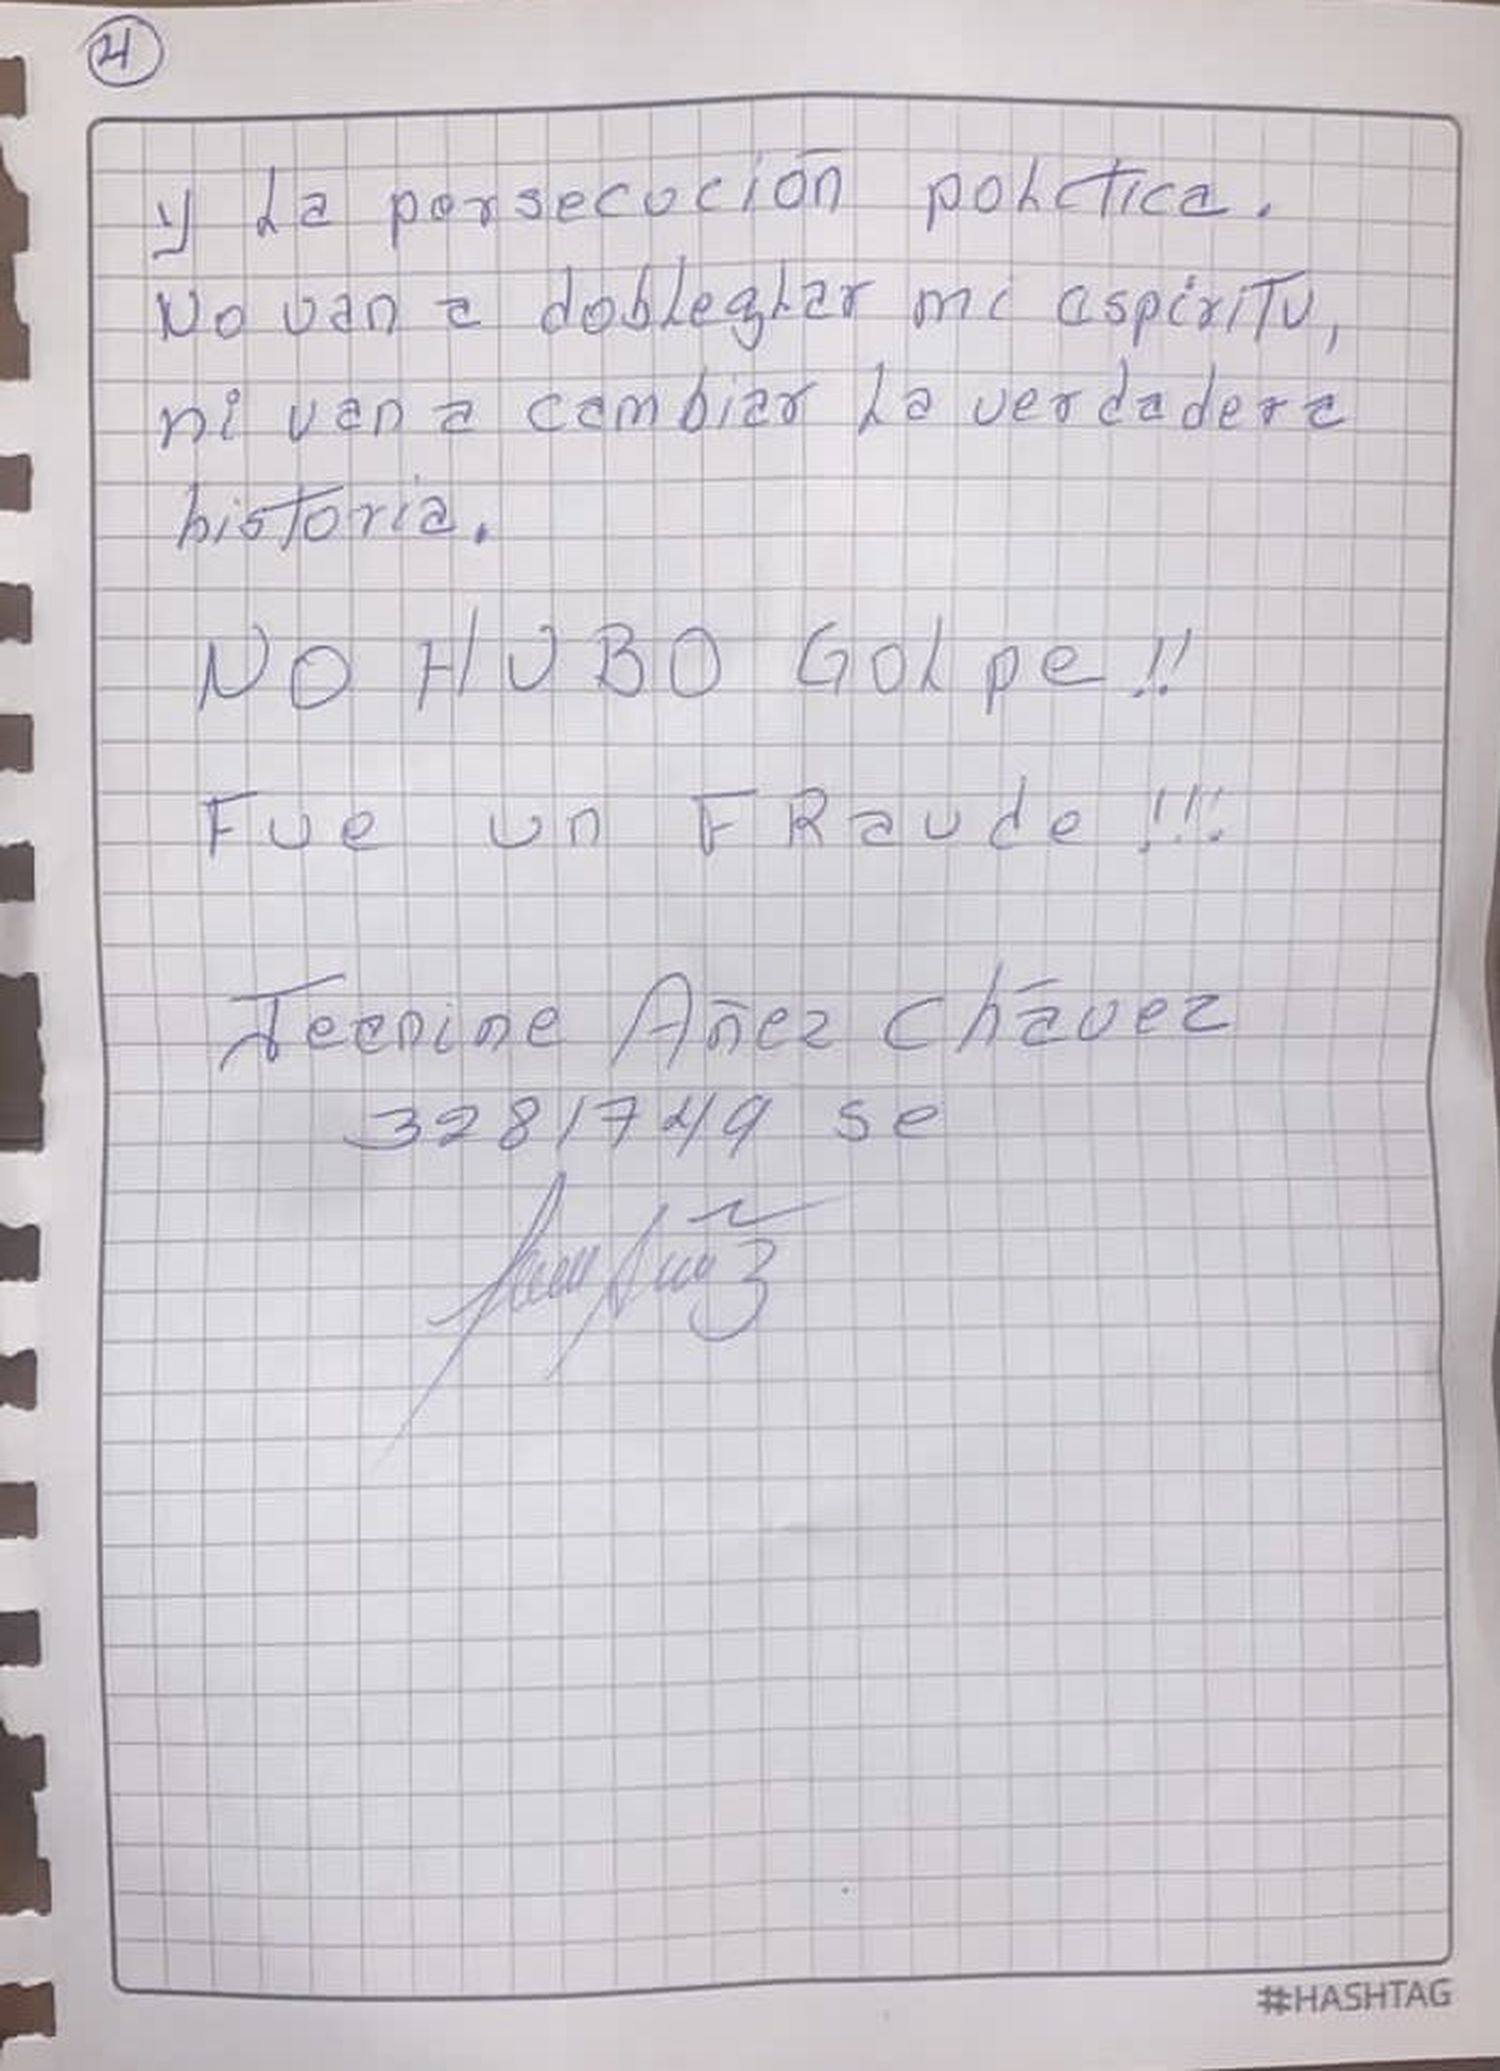 4
y La persecución política.
No van a doblegar mi espiritu,
ni van a cambiar la verdadera
historia.
NO HUBO GOLpe!!
Fue un FRaude!!!
Jeanine Añez Chávez
3281749 se
#HASHTAG